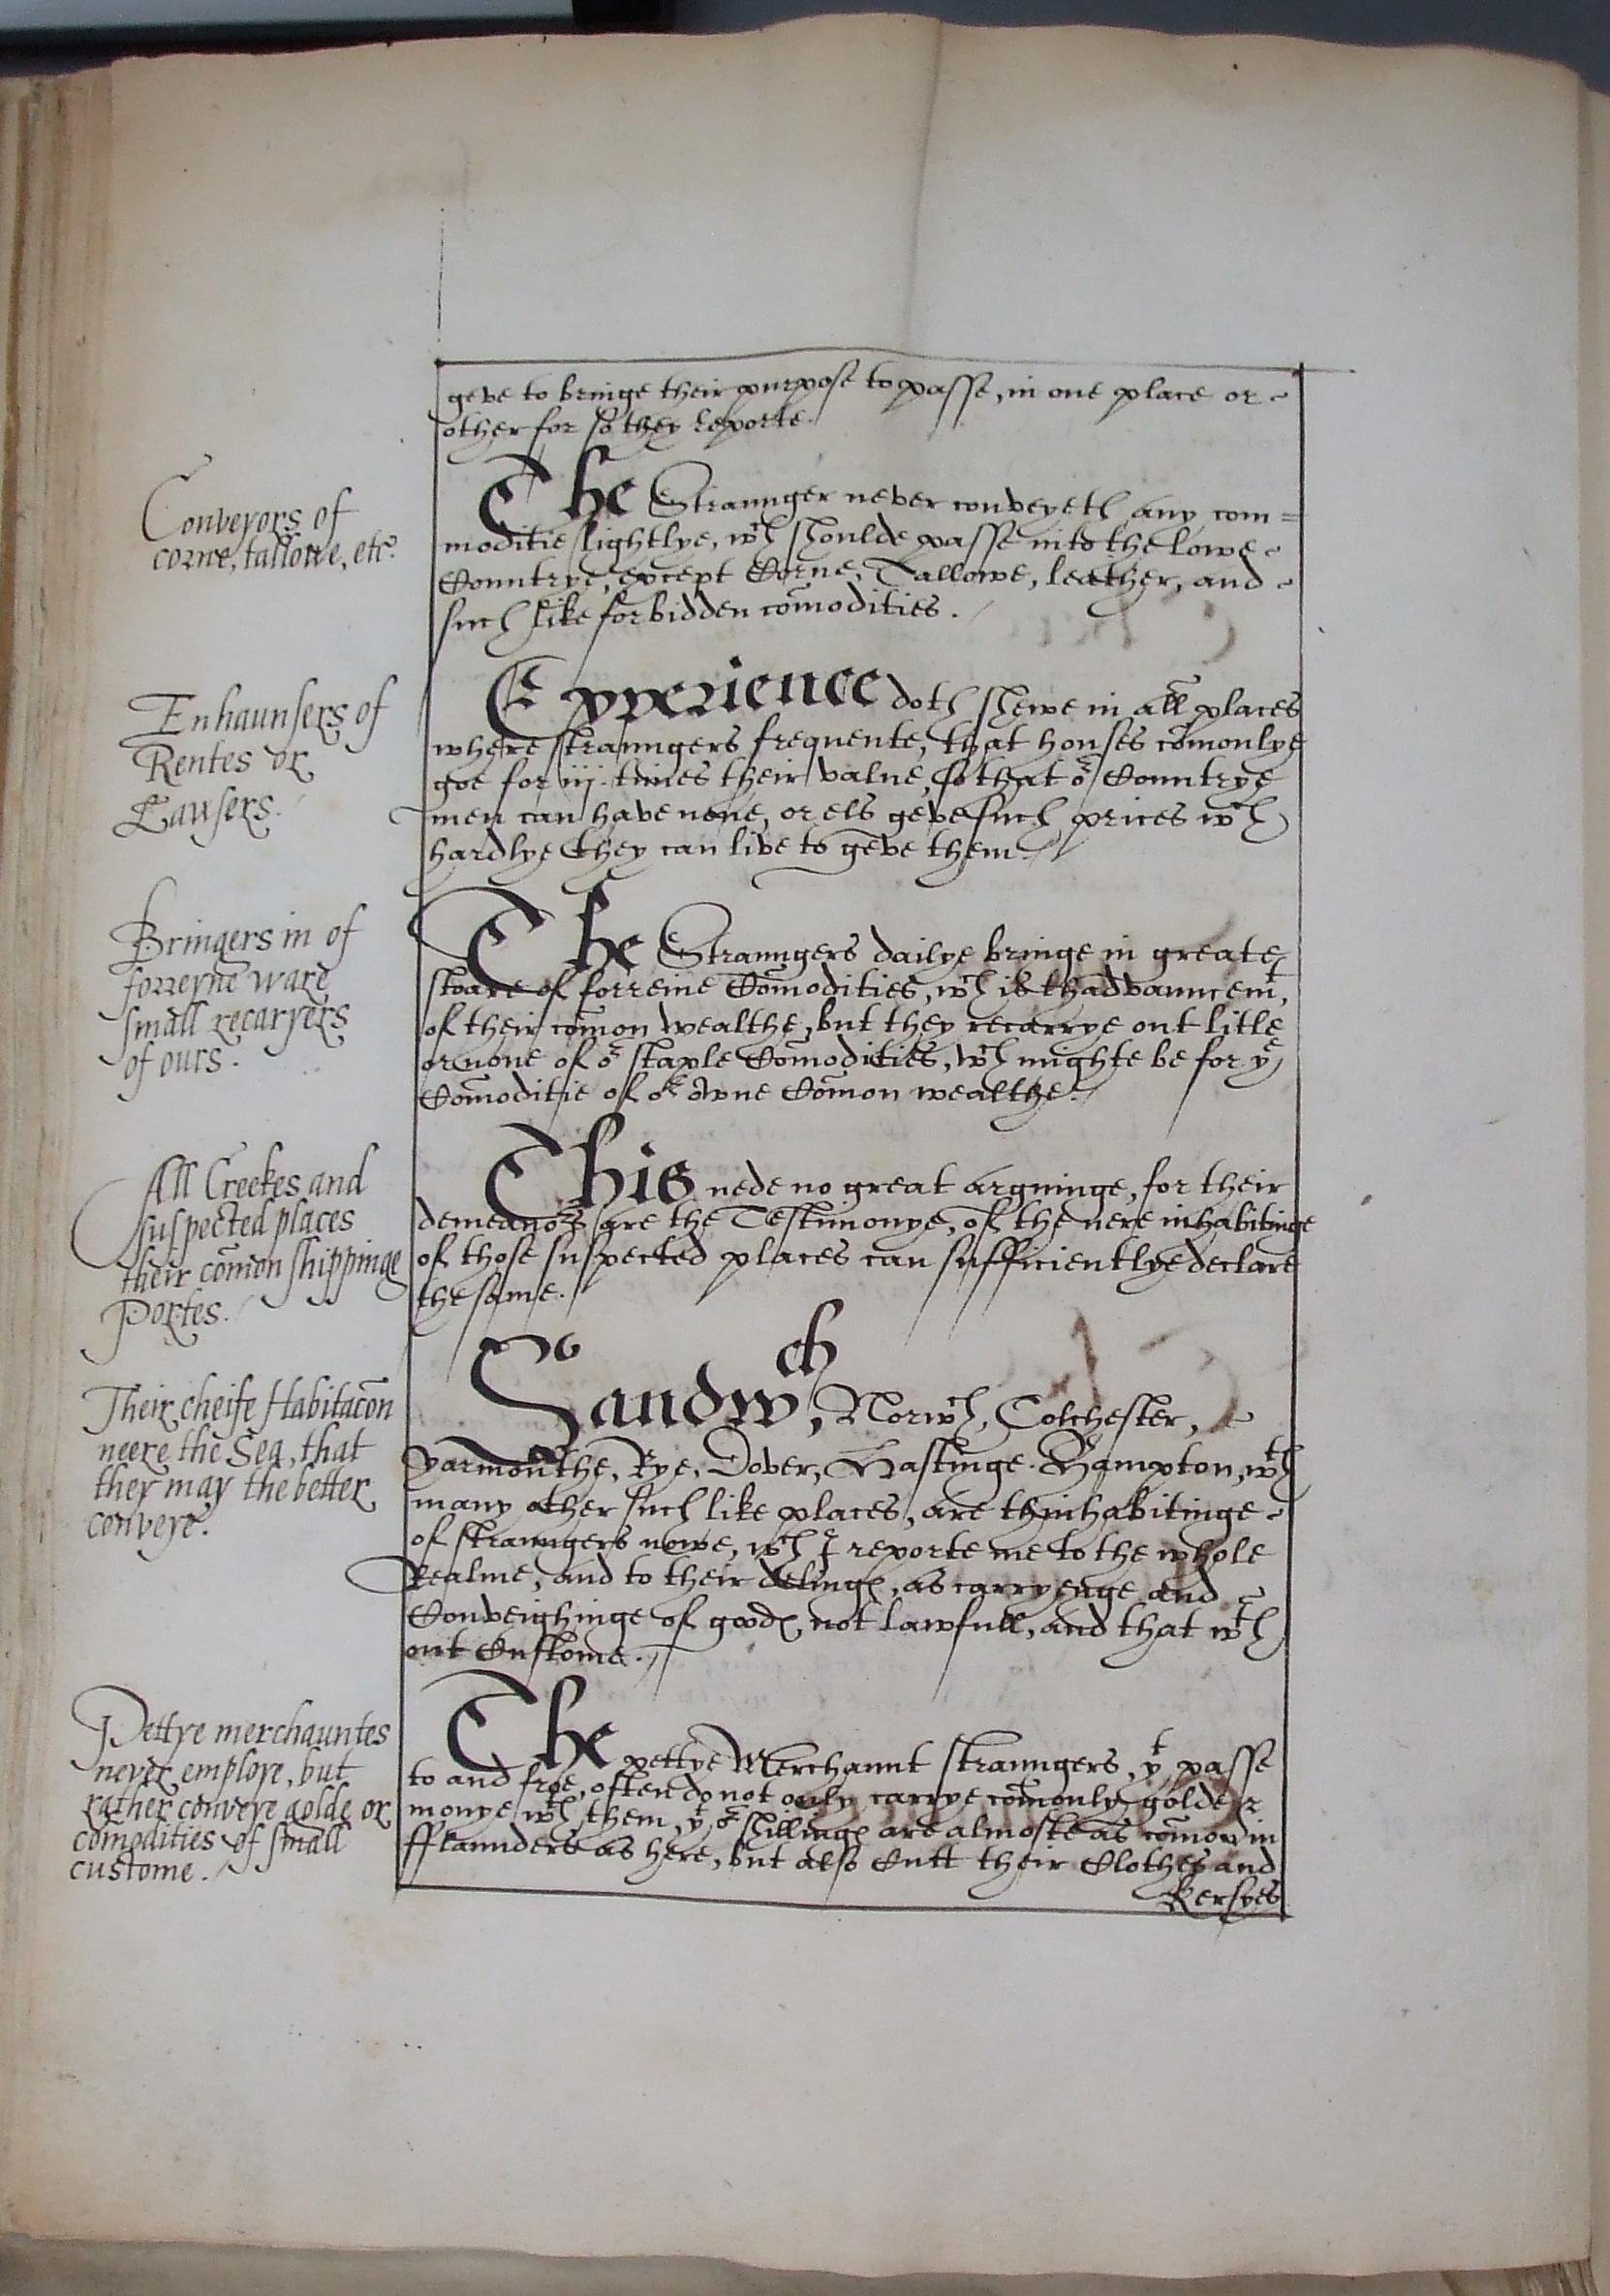 geve to bringe their purpose to passe, in one place or
other for so they reporte.
Conveyors of
corne, tallowe, etc.
The Straunger never conveyeth any com=
moditie slightlye, wch shoulde passe into the lowe
Countrye, except Corne, Tallowe, leather, and
such like forbidden com̄odities.
Enhaunsers of
Rentes or
Causers.
Experience doth shewe in all places
where straungers frequente, that houses com̄onlye
goe for iij. times their value, so that or Countrye
men can have none, or els geve such prices wch
hardlye they can live to geve them.
Bringers in of
forreyne ware
small recaryers
of ours.
The Straungers dailye bringe in greate
stoare of forreine Com̄odities, wch is thadvauncemt,
of their com̄on wealthe, but they recarrye out litle
or none of or staple Com̄odities, wch mighte be for ye
Com̄oditie of or owne Com̄on wealthe.
All Creekes and
suspected places
their com̄on shippinge
Portes.
This nede no great arguinge, for their
demeanors are the Testimonye, of the nere inhabitinge
of those suspected places can sufficientlye declare
the same.
Their cheife Habitacōn
neere the Sea, that
they may the better
conveye.
Sandwch, Norwch, Colchester,
Yarmouthe, Rye, Dover, Hastinge. Hampton, wth
many other such like places, are thinhabitinge
of straungers nowe, wch I reporte me to the whole
Realme, and to their delinges, as carryenge and
Conveighinge of goodes not lawfull, and that wth
out Custome.
Pettye merchauntes
never employe, but
rather conveye golde or
com̄odities of small
custome.
The pettye Merchaunt straungers, yt passe
to and froe, often do not only carrye com̄only golde or
monye wth them, yt or shillinges are almoste as com̄on in
fflaunders as here, but also Cutt their Clothes and
Kersyes